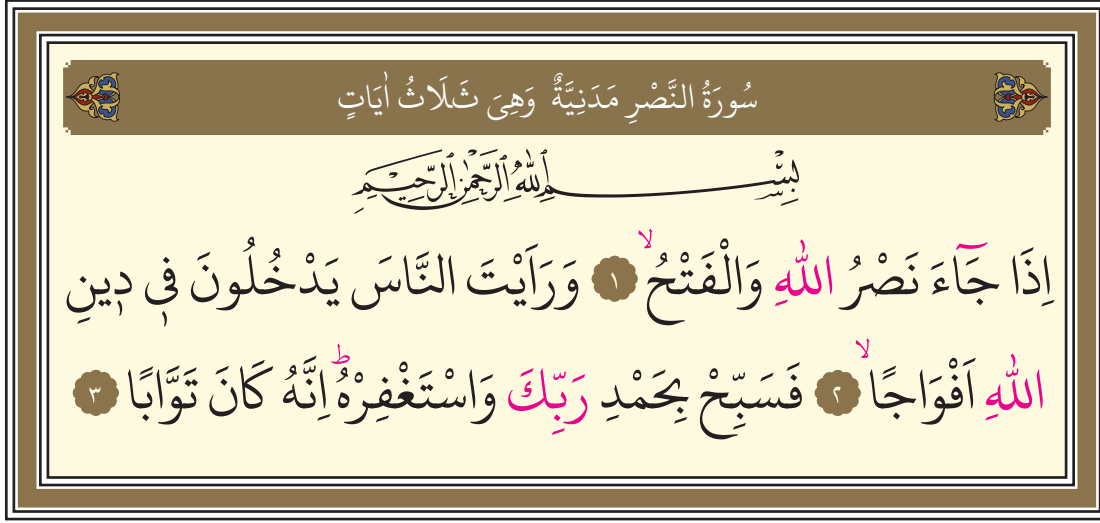 سُورَةُ النَّصْرِ مَدَنِيَّةٌ وَهِىَ ثَلَاثُ اٰيَاتٍ
بِسْمِ اللّٰهِ الرَّحْمٰنِ الرَّحِيمِ
اِذَا جَٓاءَ نَصْرُ اللّٰهِ وَالْفَتْحُۙ ١ وَرَاَيْتَ النَّاسَ يَدْخُلُونَ فٖى دٖينِ
اللّٰهِ اَفْوَاجًاۙ ٢ فَسَبِّحْ بِحَمْدِ رَبِّكَ وَاسْتَغْفِرْهُؕ اِنَّهُ كَانَ تَوَّابًا ٣